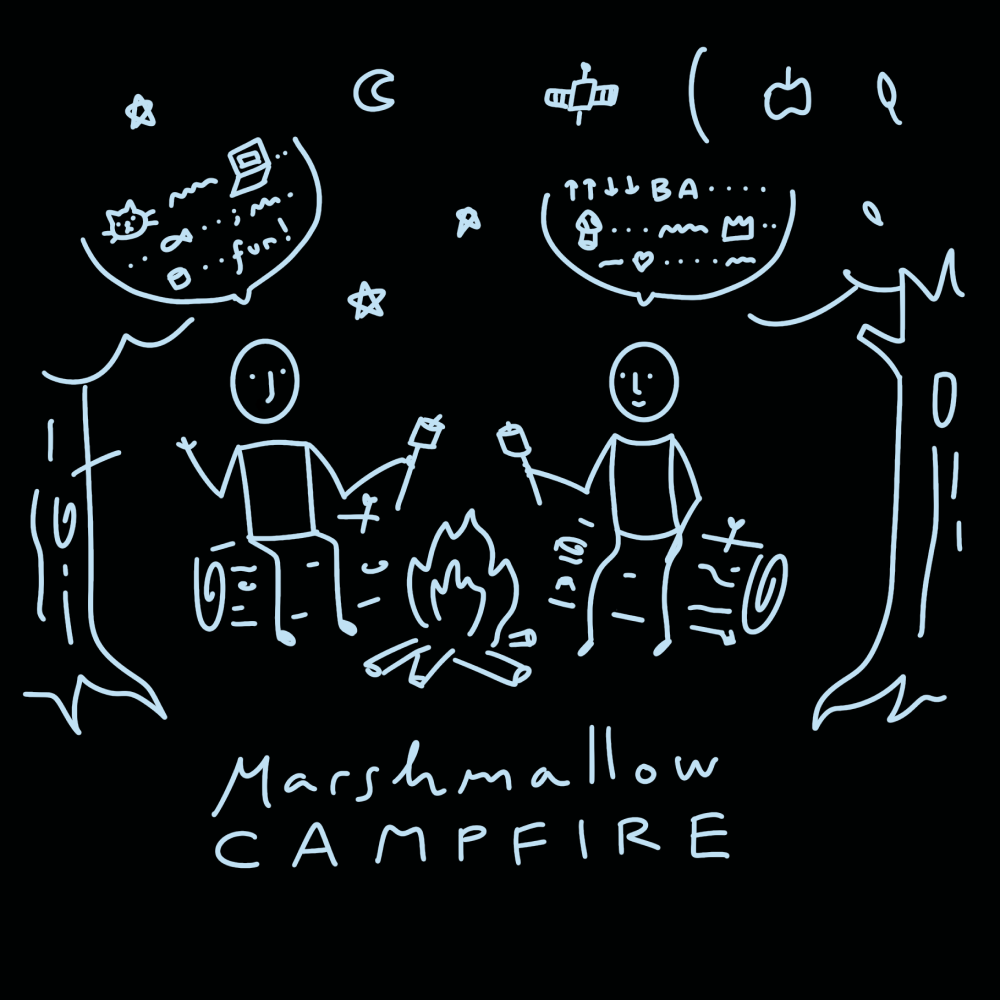 fun!
↑↑↓↓BA
Marshmallow
CAMPFIRE